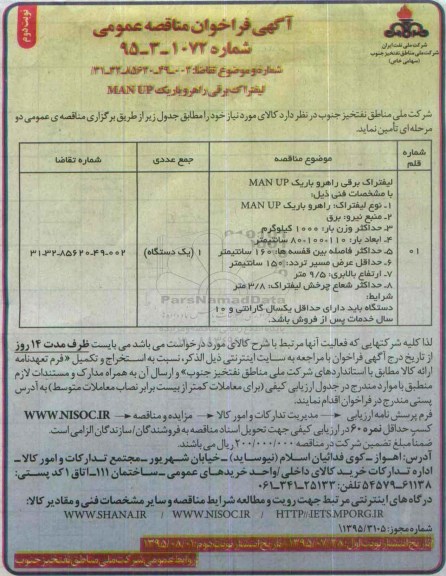 نوبت دوم
آگهی فراخوان مناقصه عمومی
شماره ۱۰۷۲-۳-۹۵
شرکت ملی نفت ایران
شرکت ملی مناطق نفتخیز جنوب
(سهامی خاص)
شماره و موضوع تقاضا: ۰۰۲-۴۹-۸۵۶۲۰-۳۲-۳۱
لیفتراک برقی راهرو باریک MAN UP
شرکت ملی مناطق نفتخیز جنوب در نظر دارد کالای مورد نیاز خود را مطابق جدول زیر از طریق برگزاری مناقصه ی عمومی دو
مرحله ای تأمین نماید.
شماره قلم
موضوع مناقصه
جمع عددی
شماره تقاضا
۰۱
لیفتراک برقی راهرو باریک MAN UP
با مشخصات فنی ذیل:
۱. نوع لیفتراک: راهرو باریک MAN UP
۲. منبع نیرو: برق
۳. حداکثر وزن بار: ۱۰۰۰ کیلوگرم
۴. ابعاد بار: ۱۱۰-۱۰۰-۸۰ سانتیمتر
۵. حداکثر فاصله بین قفسه ها: ۱۶۰ سانتیمتر
۶. حداقل عرض مسیر تردد: ۱۵۰ سانتیمتر
۷. ارتفاع بالابری: ۹/۵ متر
۸. حداکثر شعاع چرخش لیفتراک: ۳/۸ متر
شرایط:
دستگاه باید دارای حداقل یکسال گارانتی و ۱۰
سال خدمات پس از فروش باشد.
۱ (یک دستگاه)
۳۱-۳۲-۸۵۶۲۰-۴۹-۰۰۲
ParsNamadData
لذا کلیه شرکتهایی که فعالیت آنها مرتبط با شرح کالای مورد درخواست می باشد می بایست ظرف مدت ۱۴ روز
از تاریخ درج آگهی فراخوان با مراجعه به سایت اینترنتی ذیل الذکر، نسبت به استخراج و تکمیل «فرم تعهدنامه
ارائه کالا مطابق با استانداردهای شرکت ملی مناطق نفتخیز جنوب» و ارسال آن به همراه مدارک و مستندات لازم
منطبق با موارد مندرج در جدول ارزیابی کیفی (برای معاملات کمتر از بیست برابر نصاب معاملات متوسط) به آدرس
پستی مندرج در فراخوان اقدام نمایند.
فرم پرسش نامه ارزیابی ← مدیریت تدارکات و امور کالا ← مزایده و مناقصه ← WWW.NISOC.IR
کسب حداقل نمره ۶۰ در ارزیابی کیفی جهت تحویل اسناد مناقصه به فروشندگان/سازندگان الزامی است.
ضمنا مبلغ تضمین شرکت در مناقصه ۲۰۰/۰۰۰/۰۰۰ ریال می باشند.
آدرس: اهواز ـ کوی فدائیان اسلام (نیوساید) ـ خیابان شهریور ـ مجتمع تدارکات و امور کالا ـ
اداره تدارکات خرید کالای داخلی/واحد خریدهای عمومی ـ ساختمان ۱۱۱ـ اتاق ۱ کد پستی:
۶۱۱۳۸-۵۴۵۷۹ تلفن: ۲۵۱۳۳-۳۴۱-۰۶۱
درگاه های اینترنتی مرتبط جهت رویت و مطالعه شرایط مناقصه و سایر مشخصات فنی و مقادیر کالا:
WWW.SHANA.IR / WWW.NISOC.IR / HTTP//IETS.MPORG.IR
شماره مجوز: ۱۳۹۵/۳۱۰۵
تاریخ انتشار نوبت اول: ۱۳۹۵/۰۷/۲۸ تاریخ انتشار نوبت دوم: ۱۳۹۵/۰۸/۰۱
روابط عمومی شرکت ملی مناطق نفتخیز جنوب